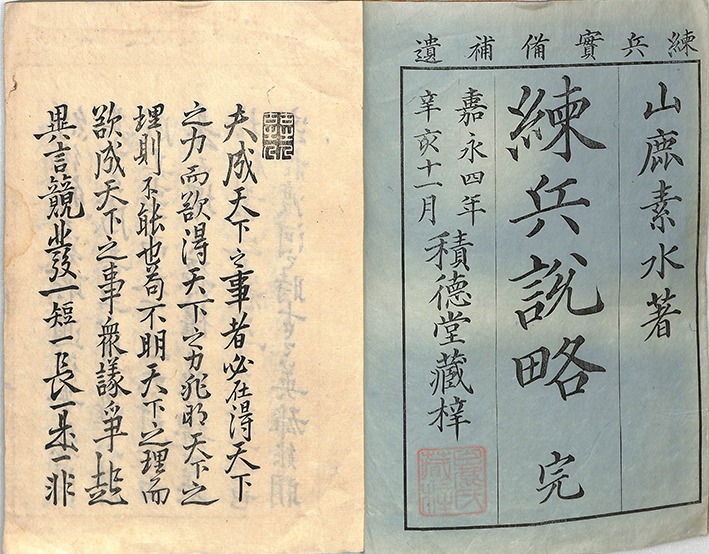 練兵實備補遺
山鹿素水著
練兵說略 完
嘉永四年
辛亥十一月
積德堂藏梓
夫成天下之事者必在得天下
之力而欲得天下之力非明天下之
理則不能也苟不明天下之理而
欲成天下之事衆議爭起
異言競發一短一長一是一非